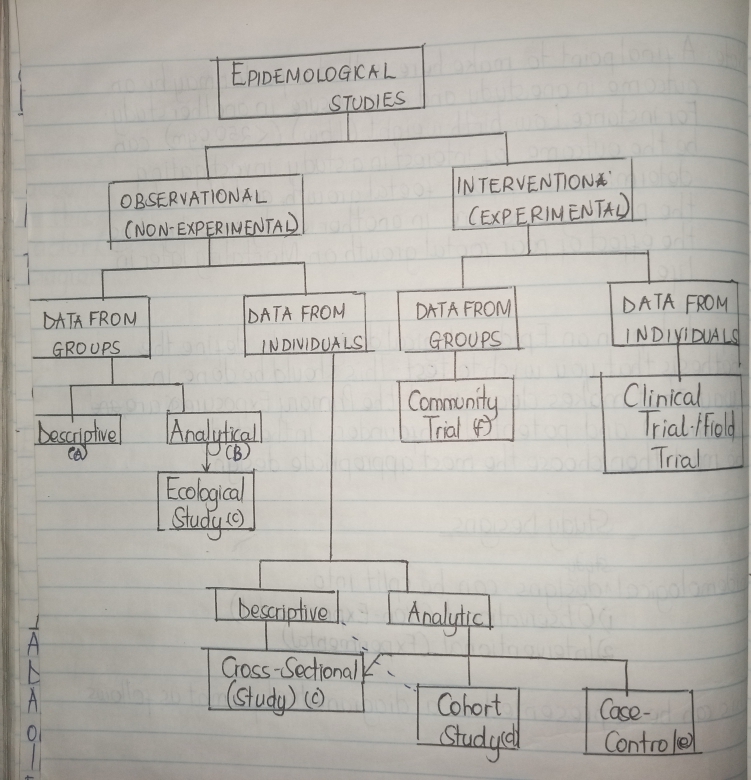 EPIDEMOLOGICAL
STUDIES
OBSERVATIONAL
(NON-EXPERIMENTAL)
INTERVENTIONA
(EXPERIMENTAL)
DATA FROM
GROUPS
DATA FROM
INDIVIDUALS
DATA FROM
GROUPS
DATA FROM
INDIVIDUALS
Descriptive
(A)
Analytical
(B)
Ecological
Study (c)
Community
Trial (f)
Clinical
Trial/Field
Trial
Descriptive
Analytic
Cross-Sectional
(Study) (c)
Cohort
Study(d)
Case-
Control(e)